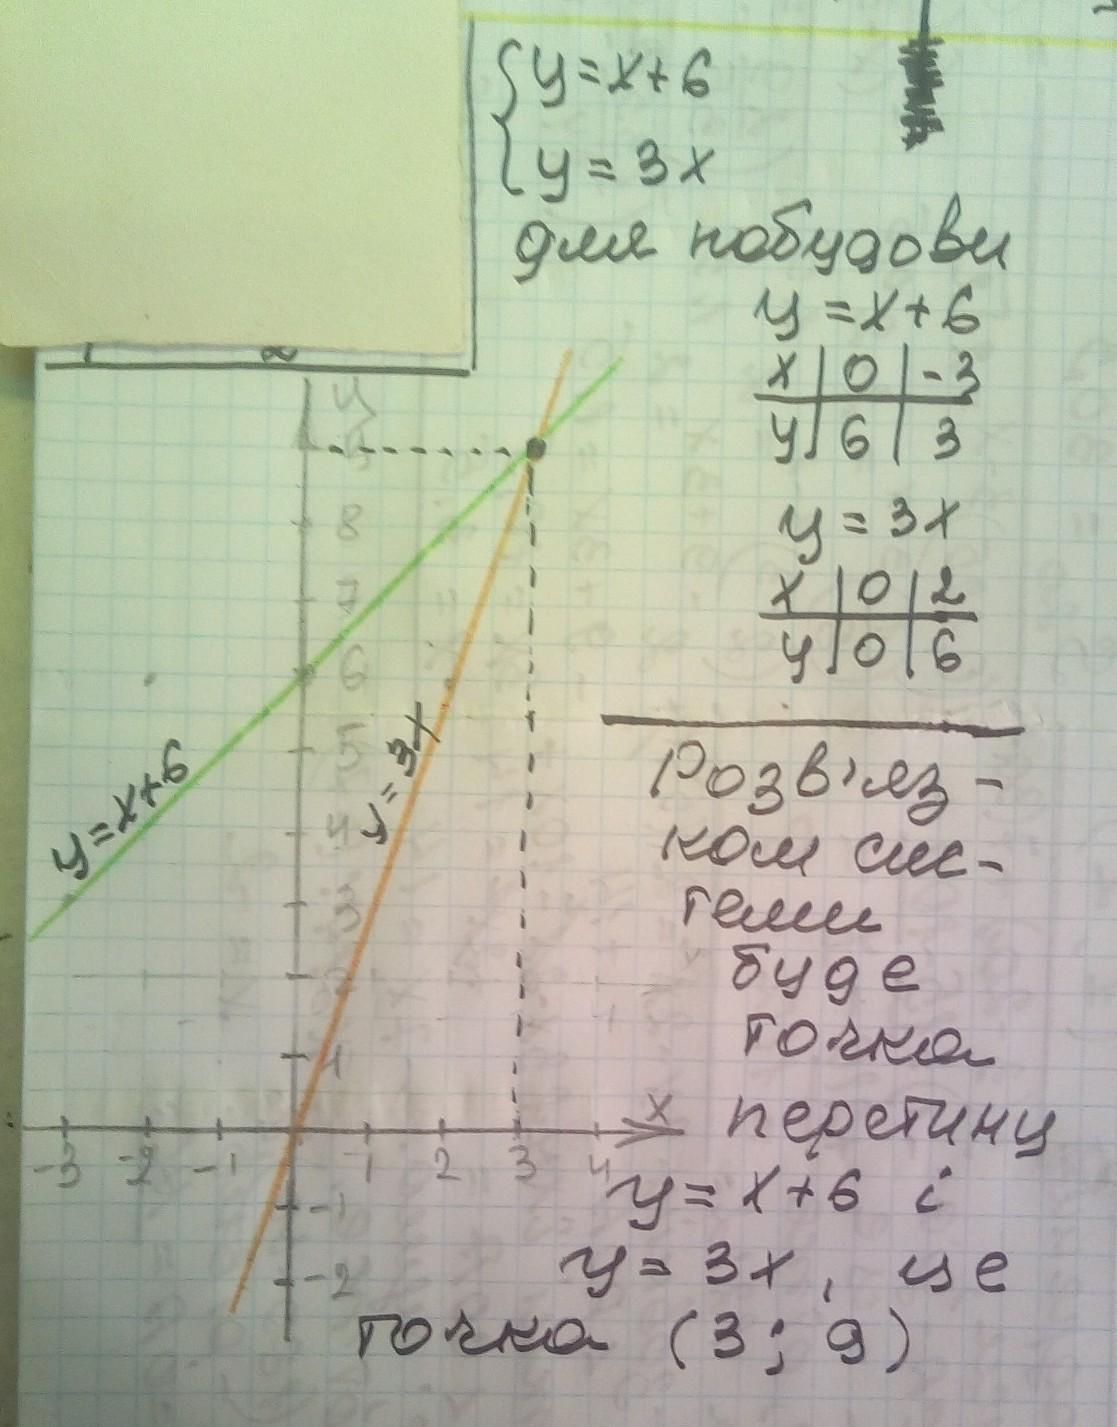 { y = x + 6
{ y = 3x
для побудови
y = x + 6
x | 0 | -3
y | 6 | 3
y = 3x
x | 0 | 2
y | 0 | 6
Розв'яз-
ком сис-
теми
буде
точка
перетину
y = x + 6 і
y = 3x, це
точка (3; 9)
y
9
8
7
6
5
4
3
2
1
-3 -2 -1 1 2 3 4 x
-1
-2
y = x + 6
y = 3x